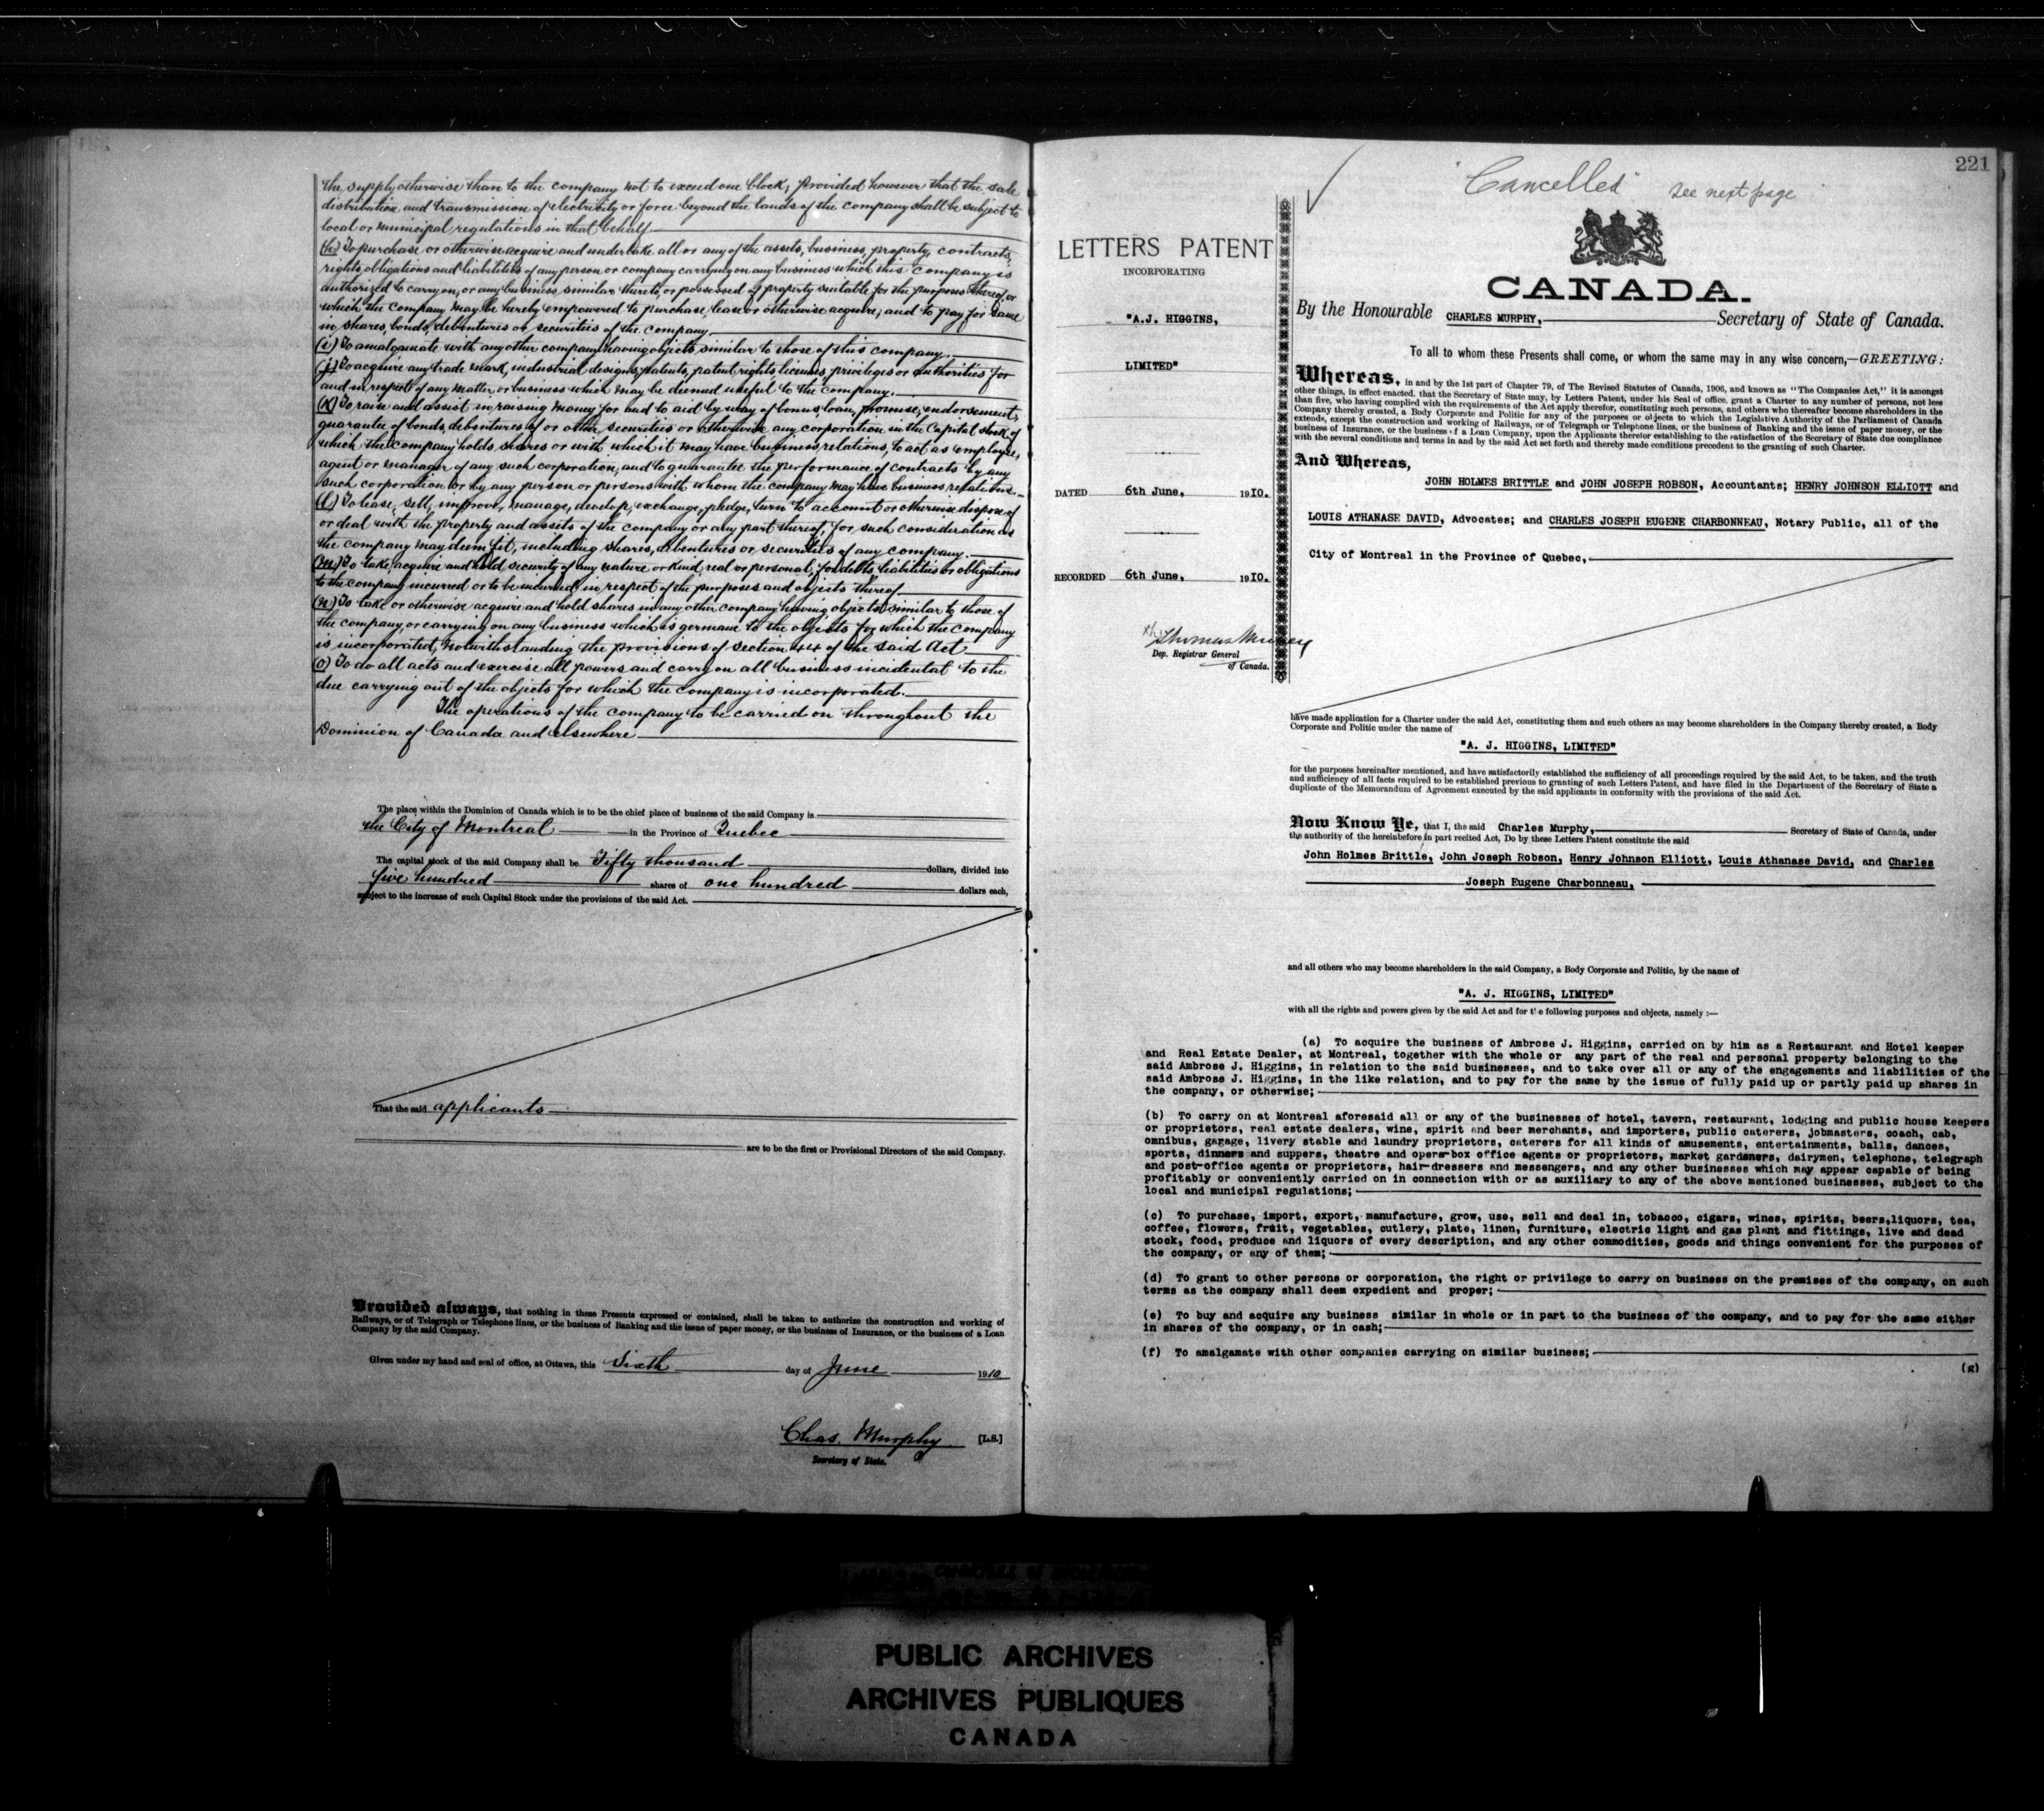 the supply otherwise than to the company not to exceed one block; Provided however that the sale
distribution and transmission of electricity or force beyond the lands of the company shall be subject to
local or municipal regulations in that behalf
(h) To purchase or otherwise acquire and undertake all or any of the assets, business, property, contracts,
rights, obligations and liabilities of any person or company carrying on any business which this company is
authorized to carry on, or any business similar thereto, or possessed of property suitable for the purposes thereof, or
which the Company may be hereby empowered to purchase, lease or otherwise acquire, and to pay for same
in shares, bonds, debentures or securities of the company.
(i) To amalgamate with any other company having objects similar to those of this company.
(j) To acquire any trade mark, industrial designs, patents, patent rights, licenses, privileges or authorities for
and in respect of any matter or business which may be deemed useful to the company.
(k) To raise and assist in raising money for and to aid by way of bonus, loan, promise, endorsement,
guarantee of bonds, debentures of or other securities or otherwise any corporation in the Capital stock of
which the company holds shares or with which it may have business relations, to act as employee,
agent or manager of any such corporation, and to guarantee the performance of contracts by any
such corporation or by any person or persons with whom the company may have business relations.
(l) To lease, sell, improve, manage, develop, exchange, pledge, turn to account or otherwise dispose of
or deal with the property and assets of the company or any part thereof, for such consideration as
the company may deem fit, including shares, debentures or securities of any company.
(m) To take, acquire and hold security of any nature or kind real or personal, for debts liabilities or obligations
to the company incurred or to be incurred in respect of the purposes and objects thereof
(n) To take or otherwise acquire and hold shares in any other company having objects similar to those of
the company, or carrying on any business which is germane to the objects for which the company
is incorporated, notwithstanding the provisions of section 44 of the said Act
(o) To do all acts and exercise all powers and carry on all business incidental to the
due carrying out of the objects for which the company is incorporated.
The operations of the company to be carried on throughout the
Dominion of Canada and elsewhere
The place within the Dominion of Canada which is to be the chief place of business of the said Company is
the City of Montreal in the Province of Quebec
The capital stock of the said Company shall be Fifty thousand dollars, divided into
five hundred shares of one hundred dollars each,
subject to the increase of such Capital Stock under the provisions of the said Act.
That the said applicants
are to be the first or Provisional Directors of the said Company.
Provided always, that nothing in these Presents expressed or contained, shall be taken to authorize the construction and working of
Railways, or of Telegraph or Telephone lines, or the business of Banking and the issue of paper money, or the business of Insurance, or the business of a Loan
Company by the said Company.
Given under my hand and seal of office, at Ottawa, this Sixth day of June 1910
Chas. Murphy [L.S.]
Secretary of State.
221
"Cancelled" see next page
LETTERS PATENT
INCORPORATING
"A.J. HIGGINS,
LIMITED"
DATED 6th June, 1910.
RECORDED 6th June, 1910.
Thomas Mulvey
Dep. Registrar General
of Canada.
CANADA.
By the Honourable CHARLES MURPHY, Secretary of State of Canada.
To all to whom these Presents shall come, or whom the same may in any wise concern,—GREETING:
Whereas, in and by the 1st part of Chapter 79, of The Revised Statutes of Canada, 1906, and known as "The Companies Act," it is amongst
other things, in effect enacted, that the Secretary of State may, by Letters Patent, under his Seal of office, grant a Charter to any number of persons, not less
than five, who having complied with the requirements of the Act apply therefor, constituting such persons, and others who thereafter become shareholders in the
Company thereby created, a Body Corporate and Politic for any of the purposes or objects to which the Legislative Authority of the Parliament of Canada
extends, except the construction and working of Railways, or of Telegraph or Telephone lines, or the business of Banking and the issue of paper money, or the
business of Insurance, or the business of a Loan Company, upon the Applicants therefor establishing to the satisfaction of the Secretary of State due compliance
with the several conditions and terms in and by the said Act set forth and thereby made conditions precedent to the granting of such Charter.
And Whereas,
JOHN HOLMES BRITTLE and JOHN JOSEPH ROBSON, Accountants; HENRY JOHNSON ELLIOTT and
LOUIS ATHANASE DAVID, Advocates; and CHARLES JOSEPH EUGENE CHARBONNEAU, Notary Public, all of the
City of Montreal in the Province of Quebec,
have made application for a Charter under the said Act, constituting them and such others as may become shareholders in the Company thereby created, a Body
Corporate and Politic under the name of
"A. J. HIGGINS, LIMITED"
for the purposes hereinafter mentioned, and have satisfactorily established the sufficiency of all proceedings required by the said Act, to be taken, and the truth
and sufficiency of all facts required to be established previous to granting of such Letters Patent, and have filed in the Department of the Secretary of State a
duplicate of the Memorandum of Agreement executed by the said applicants in conformity with the provisions of the said Act.
Now Know Ye, that I, the said Charles Murphy, Secretary of State of Canada, under
the authority of the hereinbefore in part recited Act, Do by these Letters Patent constitute the said
John Holmes Brittle, John Joseph Robson, Henry Johnson Elliott, Louis Athanase David, and Charles
Joseph Eugene Charbonneau,
and all others who may become shareholders in the said Company, a Body Corporate and Politic, by the name of
"A. J. HIGGINS, LIMITED"
with all the rights and powers given by the said Act and for the following purposes and objects, namely :—
(a) To acquire the business of Ambrose J. Higgins, carried on by him as a Restaurant and Hotel keeper
and Real Estate Dealer, at Montreal, together with the whole or any part of the real and personal property belonging to the
said Ambrose J. Higgins, in relation to the said businesses, and to take over all or any of the engagements and liabilities of the
said Ambrose J. Higgins, in the like relation, and to pay for the same by the issue of fully paid up or partly paid up shares in
the company, or otherwise;
(b) To carry on at Montreal aforesaid all or any of the businesses of hotel, tavern, restaurant, lodging and public house keepers
or proprietors, real estate dealers, wine, spirit and beer merchants, and importers, public caterers, jobmasters, coach, cab,
omnibus, garage, livery stable and laundry proprietors, caterers for all kinds of amusements, entertainments, balls, dances,
sports, dinners and suppers, theatre and opera-box office agents or proprietors, market gardeners, dairymen, telephone, telegraph
and post-office agents or proprietors, hair-dressers and messengers, and any other businesses which may appear capable of being
profitably or conveniently carried on in connection with or as auxiliary to any of the above mentioned businesses, subject to the
local and municipal regulations;
(c) To purchase, import, export, manufacture, grow, use, sell and deal in, tobacco, cigars, wines, spirits, beers,liquors, tea,
coffee, flowers, fruit, vegetables, cutlery, plate, linen, furniture, electric light and gas plant and fittings, live and dead
stock, food, produce and liquors of every description, and any other commodities, goods and things convenient for the purposes of
the company, or any of them;
(d) To grant to other persons or corporation, the right or privilege to carry on business on the premises of the company, on such
terms as the company shall deem expedient and proper;
(e) To buy and acquire any business similar in whole or in part to the business of the company, and to pay for the same either
in shares of the company, or in cash;
(f) To amalgamate with other companies carrying on similar business;
(g)
PUBLIC ARCHIVES
ARCHIVES PUBLIQUES
CANADA